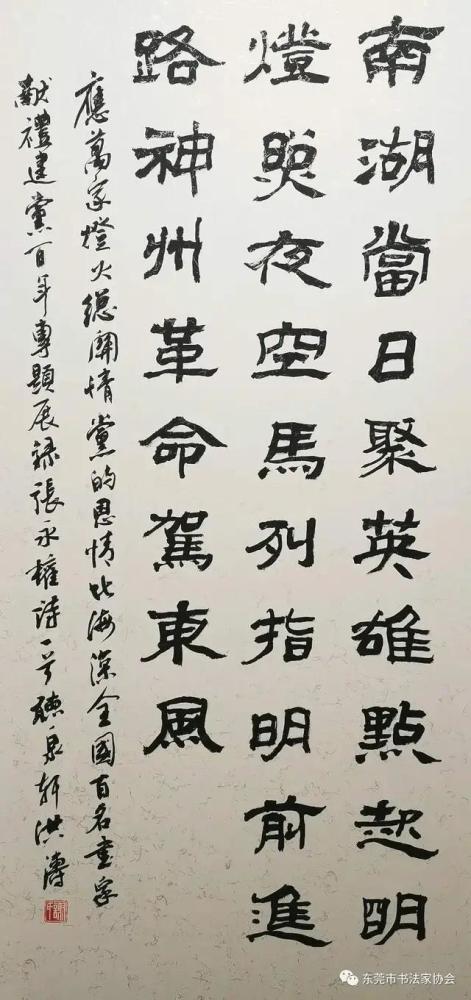 南湖當日聚英雄點起明
燈照夜空馬列指明前進
路神州革命駕東風
應萬家燈火總關情黨的恩情比海深全國百名書家
献禮建黨百年專題展錄張永權詩一首聽泉軒洪濤
东莞市书法家协会